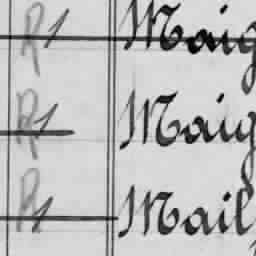 R1 Maig
R1 Maig
R1 Mail